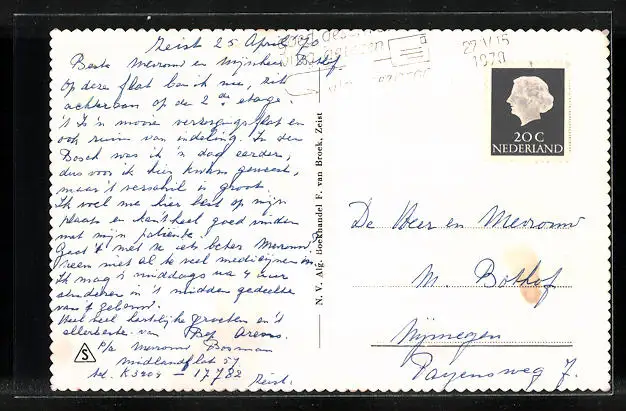 Zeist 25 April 70
Beste Mevrouw en Mijnheer Bothof
Op deze flat ben ik nu, zit
achteraan op de 2de etage.
't Is 'n mooie verzorgingsflat en
ook ruim van indeling. In den
Bosch was ik 'n dag eerder,
dus voor ik hier kwam geweest,
maar 't verschil is groot.
Ik voel me hier best op mijn
plaats en kan 't heel goed vinden
met mijn patiënte.
Gaat 't met U iets beter Mevrouw?
Neem niet al te veel medicijnen in.
Ik mag 's middags na 4 uur
studeren in 't midden gedeelte
van 't gebouw.
Heel veel hartelijke groeten en 't
allerbeste van Bep Arens.
P/a Mevrouw Bosman
Midlandflat 51
tel. K3404 - 17782
Zeist.
N. V. Alg. Boekhandel F. van Broek, Zeist
27.IV.15
1970
20 C
NEDERLAND
De Heer en Mevrouw
M. Bothof
Nijmegen
Payensweg 7.
S